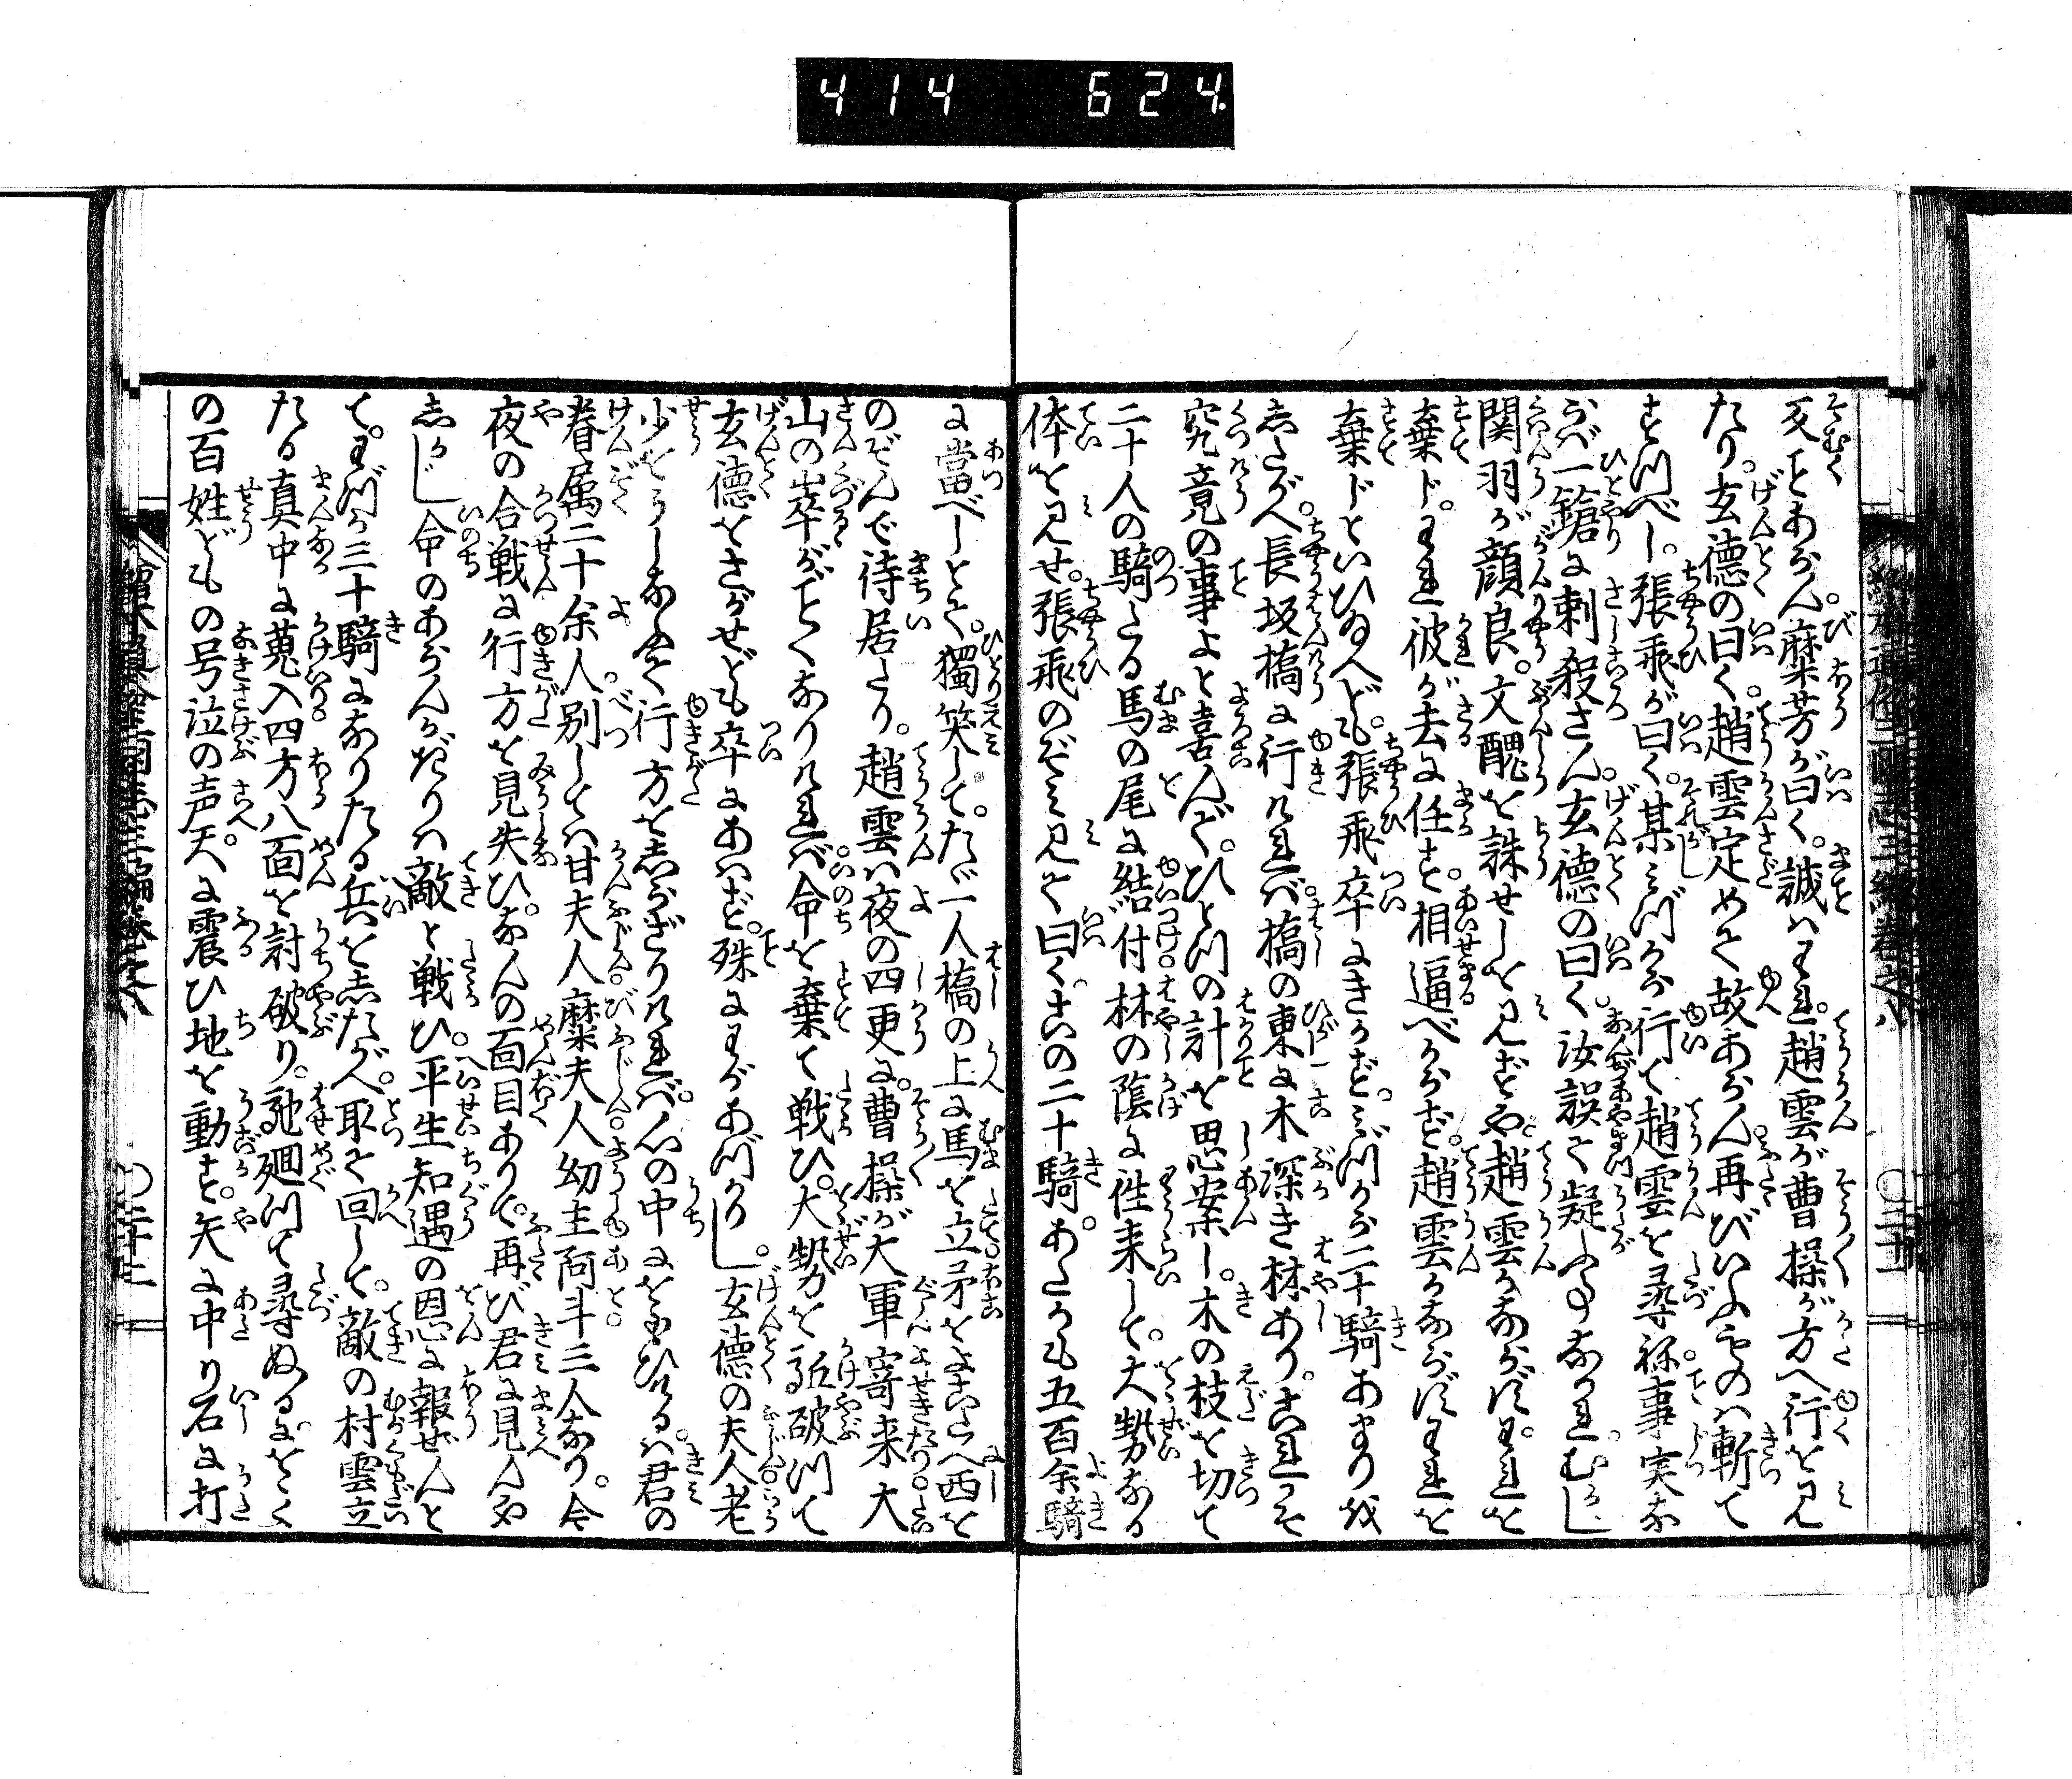 414 624
反ことあらん。糜芳が曰く。誠はわれ。趙雲が曹操が方へ行を見
たり。玄徳の曰く。趙雲定めて故あらん。再びいふものは斬て
すつべし。張飛が曰く。某みづから行て趙雲を尋ね。事実な
らば一鎗に刺殺さん。玄徳の曰く。汝誤て疑ふ事なかれ。むかし
関羽が顔良。文醜を誅せしを見ずや。趙雲かならずわれを
棄じ。われ彼が去に任す。相逼べからず。趙雲かならずわれを
棄じといひゐへども。張飛卒にきかず。みづから二十騎あまり
したがへ。長坂橋に行ければ。橋の東に木深き林あり。これこそ
究竟の事よと喜んで。ひとつの計を思案し。木の枝を切て
二十人の騎たる馬の尾に結付。林の陰に往来して。大勢なる
体を見せ。張飛のぞみ見て曰く。この二十騎。あたかも五百余騎
に當べしとて。獨笑して。たゞ一人橋の上に馬を立。矛をよこたへ西を
のぞんで待居たり。趙雲は夜の四更に。曹操が大軍寄来。大
山の崩がごとくなりければ。命を棄て戦ひ。大勢を駈破つて
玄徳をさがせども卒にあはず。殊にわがあづかりし。玄徳の夫人老
少をうしなふて行方をしらざりければ。心の中におもひけるは。君の
眷属二十余人。別しては甘夫人。糜夫人。幼主阿斗三人なり。今
夜の合戦に行方を見失ひ。なんの面目ありて。再び君に見んや
しかじ命のあらんかぎりは敵と戦ひ。平生知遇の恩に報ぜんと
て。わづか三十騎になりたる兵をしたがへ。取て回して。敵の村雲立
たる真中に蒐入。四方八面を討破り。馳廻つて尋ぬるに。おほく
の百姓どもの号泣の声。天に震ひ地を動す。矢に中り石に打